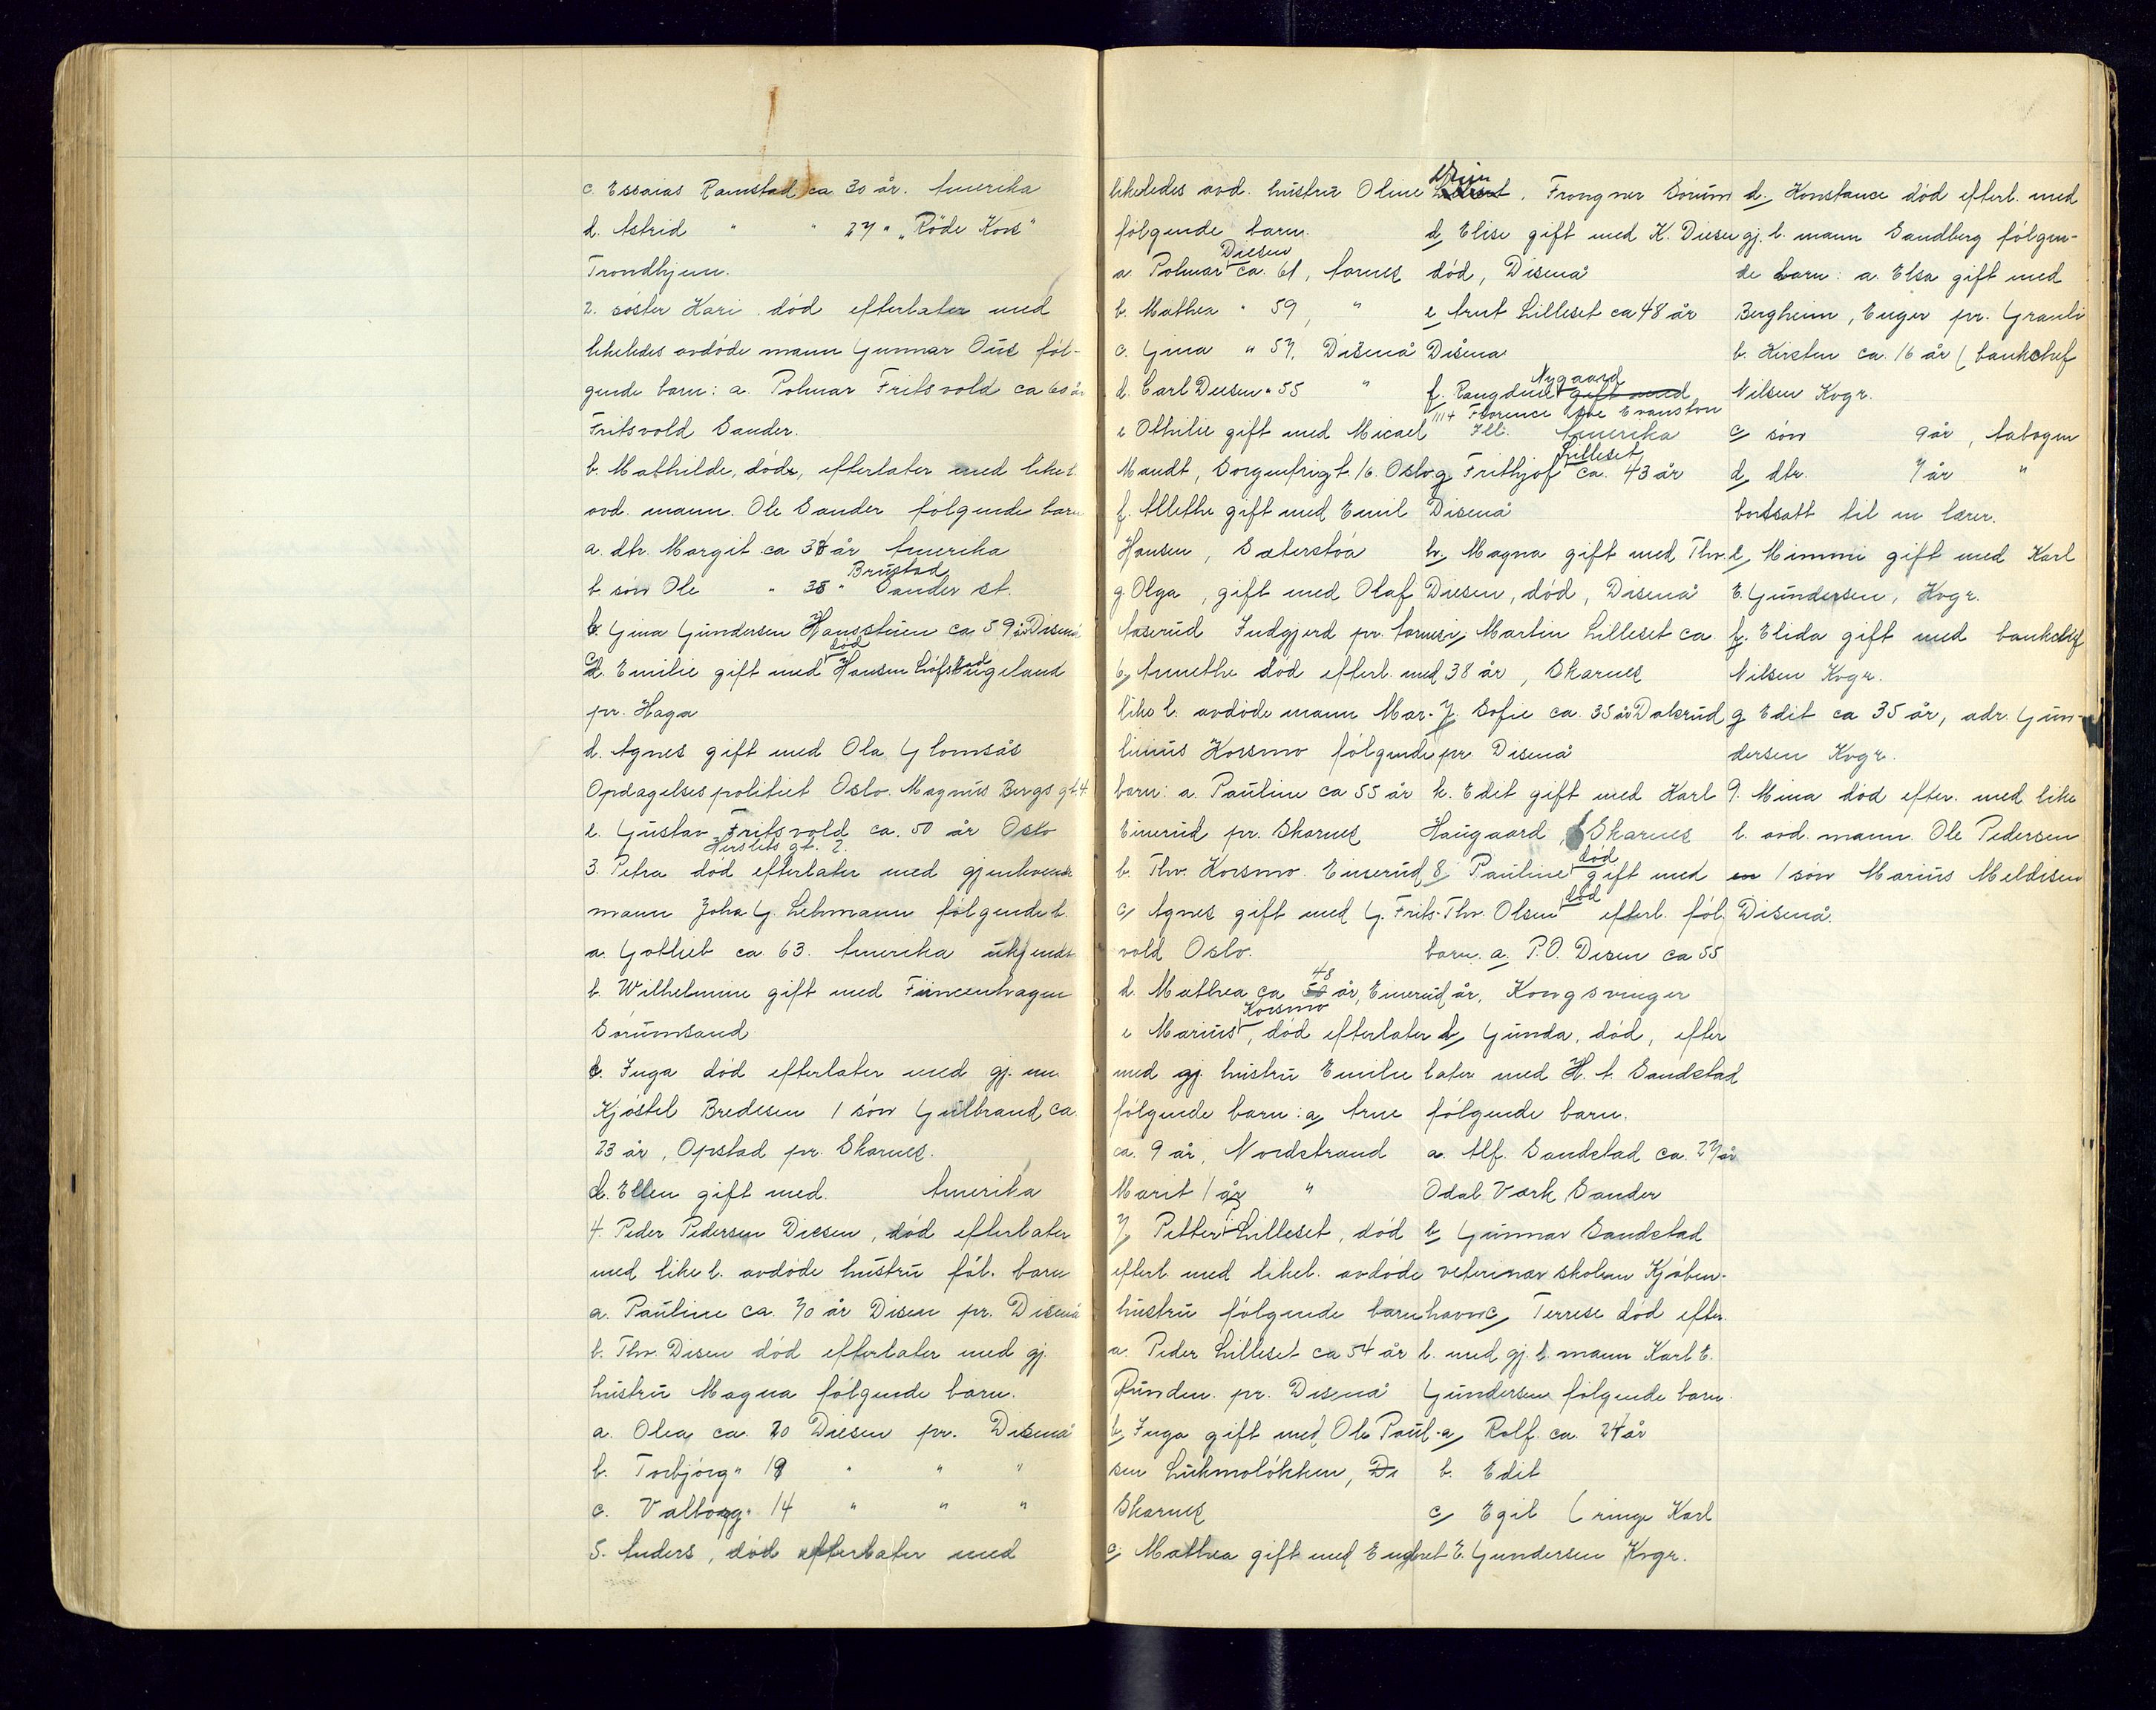 c. Essaias Ramstad ca 30 år. Amerika
d. Astrid " " 27 " „Röde Kors"
Trondhjem.
2. söster Kari død efterlater med
likeledes avdöde mann Gunnar Ous föl-
gende barn: a. Polmar Fritsvold ca 60 år
Fritsvold Sander.
b. Mathilde, död, efterlater med like l.
avd. mann. Ole Sander fölgende barn
a. dtr. Margit ca 38 år Amerika
Brustad
b. sön Ole " 35 " Sander st.
b. Gina Gundersen Hansstuen ca 59 år Disenå
död
c. Emilie gift med Hansen Löfstad
pr. Haga
d. Agnes gift med Ola Glomsås
Opdagelsespolitiet Oslo. Magnus Bergs gt. 4
e. Gustav Fritsvold ca. 50 år Oslo
Herslebs gt. 2.
3. Petra død efterlater med gjenlevende
mann Joha G. Lehmann fölgende b.
a. Gotlieb ca 63. Amerika ukjendt
b. Wilhelmine gift med Füncenhagen
Sörumsand
c. Inga död efterlater med gj. m.
Kjöstel Bredesen 1 sön Gulbrand ca.
23 år, Opstad pr. Skarnes.
d. Ellen gift med. Amerika
4. Peder Pedersen Diesen, död efterlater
med like l. avdöde hustru föl. barn
a. Pauline ca. 70 år Disen pr. Disenå
b. Thv. Disen död efterlater med gj.
hustru Magna fölgende barn.
a. Olea ca. 20 Diesen pr. Disenå
b. Torbjörg " 19 " " "
c. Valborg " 14 " " "
5. Anders, död efterlater med
likeledes avd. hustru Oline
fölgende barn.
Diesen
a. Polmar ca. 61, Aarnes
b. Mathea " 59, "
c. Gina " 57, Disenå
d. Carl Diesen " 55 "
e Othilie gift med Micael
Mandt, Sorgenfrigt 16. Oslo
f. Allethe gift med Emil
Hansen, Sæterstöa
g. Olga, gift med Olaf
Aaserud Indgjerd pr. Aarnes
6, Annethe död efterl. med
like l. avdöde mann Mar-
linius Korsmo fölgende
barn: a. Pauline ca 55 år
Einerud pr. Skarnes
b. Thv. Korsmo. Einerud
c, Agnes gift med G. Frits-
vold Oslo.
48
d. Mathea ca 50 år, Einerud
Korsmo
e Marius, död efterlater
med gj. hustru Emilie
fölgende barn: a, Arne
ca. 9 år, Nordstrand
Marit 1 år "
7, Petter Lilleset, död
efterl. med likel. avdöde
hustru fölgende barn
a. Peder Lilleset ca 54 år
Runden. pr. Disenå
b, Inga gift med Ole Paul-
sen Lukmolökken, De
Skarnes
c, Mathea gift med Engbret
Frongner Sörum
d, Elise gift med K. Diesen
död, Disenå
e, Arnt Lilleset ca 48 år
Disenå
Nygaard
f. Rangdine gift med
1114 Florence Ave Evanston
Ill. Amerika
Lilleset
g, Frithjof ca. 43 år
Disenå
h, Magna gift med Thv.
Diesen, död, Disenå
i, Martin Lilleset ca
38 år, Skarnes
j. Sofie ca. 35 år Dakerud
pr. Disenå
k. Edit gift med Karl
Haugaard, Skarnes
död
8, Pauline gift med
död
Thv. Olsen efterl. föl.
barn. a. P.O. Disen ca 55
år, Kongsvinger
b, Gunda, död, efter
later med H. A. Sandstad
fölgende barn.
a. Alf. Sandstad ca. 27 år
Odal Værk, Sander
b, Gunnar Sandstad
veterinær skolen Kjöben-
havn c, Terrese död efter.
l. med gj. l. mann Karl E.
Gundersen fölgende barn.
a, Rolf. ca. 24 år
b. Edit
c, Egil (ringe Karl
E. Gundersen Kvgr.
d, Konstance död efterl. med
gj. l. mann Sandberg fölgen-
de barn: a. Elsa gift med
Bergheim, Enger pr. Grauli
b. Kirsten ca. 16 år (bankchef
Nilsen Kvgr.
c, sön 9 år, Aabogen
d, dtr. 7 år "
bortsatt til en lærer.
e, Mimmi gift med Karl
E. Gundersen, Kvgr.
f, Elida gift med bankchef
Nilsen Kvgr.
g Edit ca 35 år, adr. Gun-
dersen Kvgr.
9. Mina död efter. med like
l. avd. mann. Ole Pedersen
en 1 sön Marius Meldisen
Disenå.